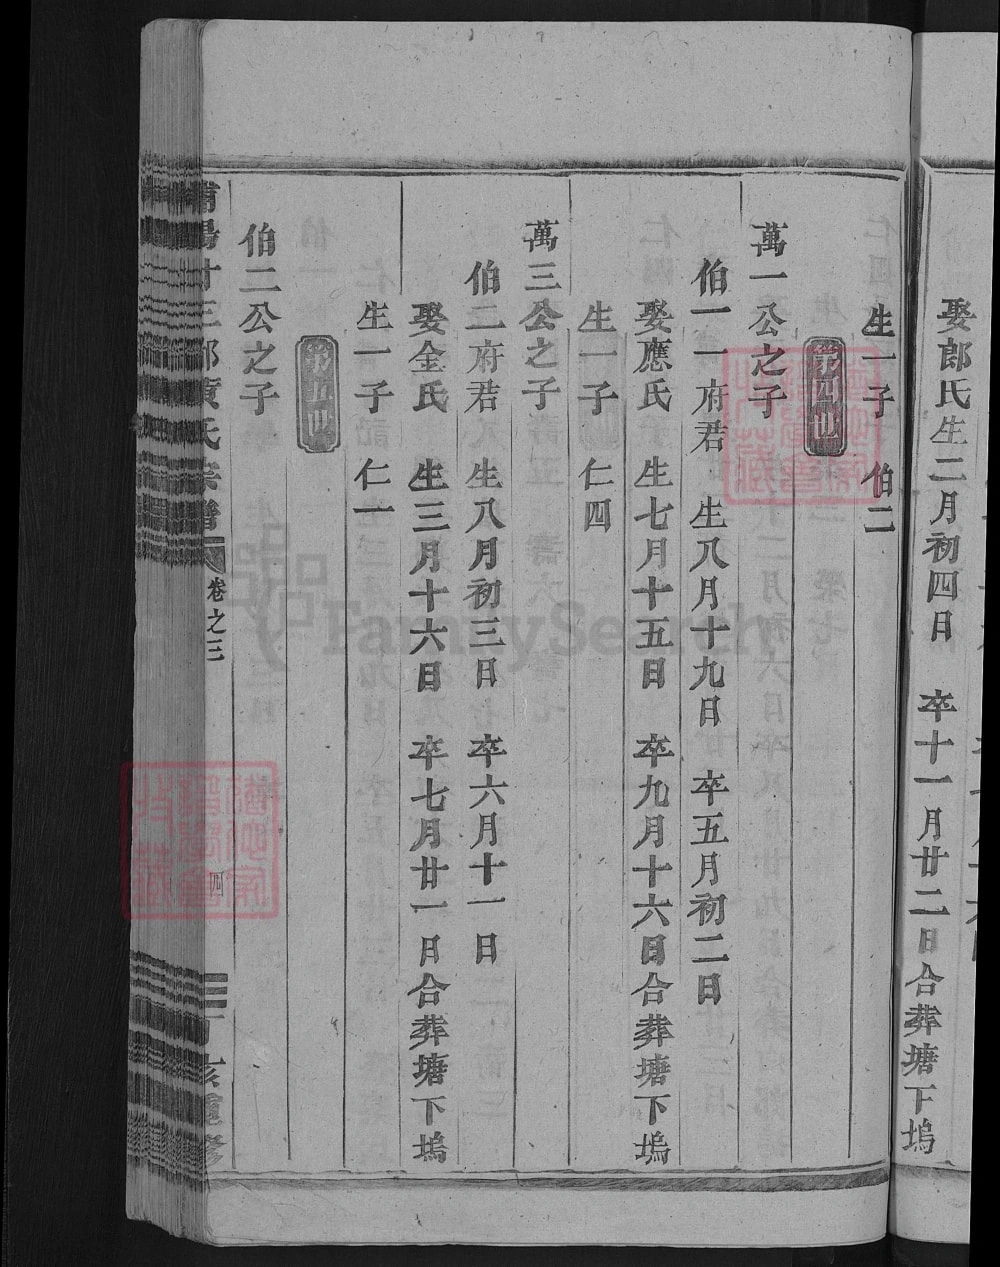 娶郎氏生二月初四日 卒十一月廿二日合葬塘下塢
生一子 伯二
第四世
萬一公之子
伯一府君 生八月十九日 卒五月初二日
娶應氏 生七月十五日 卒九月十六日合葬塘下塢
生一子 仁四
萬三公之子
伯二府君 生八月初三日 卒六月十一日
娶金氏 生三月十六日 卒七月廿一日合葬塘下塢
生一子 仁一
第五世
伯二公之子
卷之三
四
FamilySearch